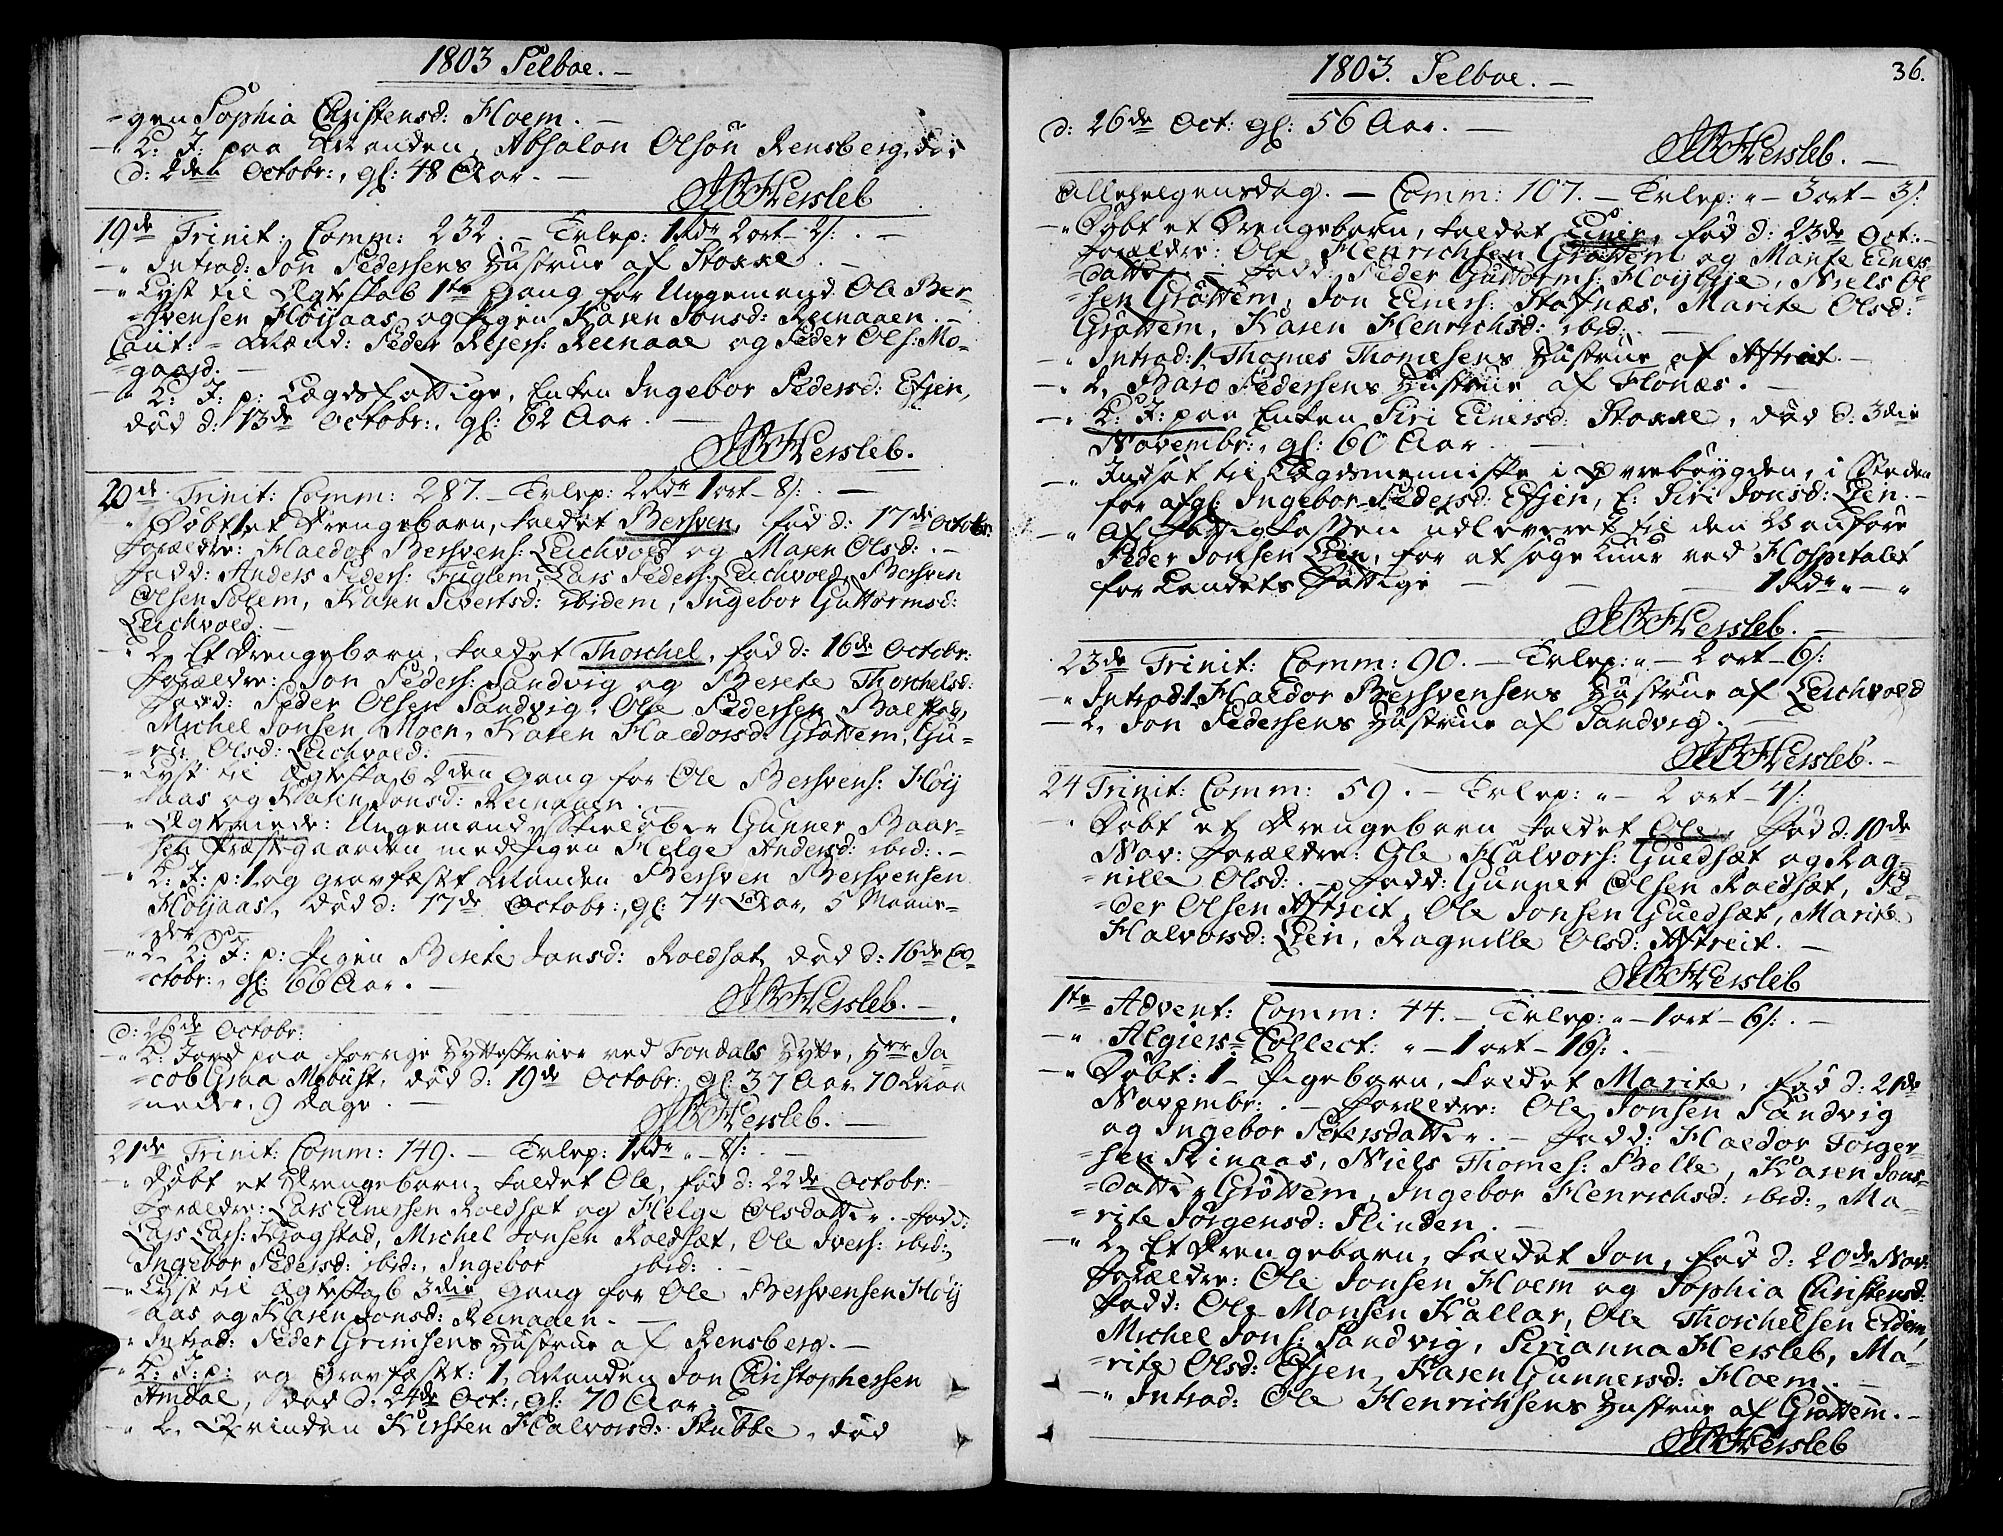 1803 Selboe. –
-gen Sophia Christensd: Hoem. –
–" K: J: paa Manden, Absalon Olsøn Rensberg, død
d: 2den Octobr:, gl: 48 Aar. –
JBHersleb
19de Trinit: Comm: 232. – Tvlep: 1 Rdr 2 ort – 2 s:. –
–" Introd: Jon Pedersens Hustrue af Stokke. –
–" Lyst til Ægteskab 1te Gang for Ungemand Ole Ber-
-svensen Høyaas og Pigen Karen Jonsd: Reinaaen. –
Caut: – Mænd: Peder Rejers: Reinaae og Peder Ols: Mo-
-gaard. –
–" K: J: p: Lægdsfattige, Enken Ingebor Pedersd: Efjen,
død d: 13de Octobr:, gl: 62 Aar. –
JBHersleb.
20de Trinit: Comm: 287. – Tvlep: 2 Rdr 1 ort – 8 s:. –
–" Døbt 1 et Drengebarn, kaldet Bersven, fød d: 17de Octobr:
Forældre: Haldor Bersvens: Leichvold og Maren Olsd:. –
Fadd: Anders Peders: Fuglem, Lars Peders: Leichvold, Bersven
Olsen Solem, Karen Sivertsd: ibidem, Ingebor Guttormsd:
Leichvold. –
–" 2, Et Drengebarn, kaldet Thorchel, fød d: 16de Octobr:
Forældre: Jon Peders: Sandvig og Berete Thorchelsd:
Fadd: Peder Olsen Sandvig, Ole Pedersen Balstad,
Michel Jonsen Moen, Karen Haldorsd: Grøttem, Gu-
-ru Olsd: Leichvold. –
–" Lyst til Ægteskab 2den Gang for Ole Bersvens: Høy
-aas og Karen Jonsd: Reinaaen. –
–" Ægteviede: Ungemand Skieløber Gunner Baar-
sen Præstgaarden med Pigen Helge Andersd: ibid:. –
–" K: J: p: 1, og gravfæstt Manden Bersven Bersvensen
Høyaas, død d: 17de Octobr:, gl: 74 Aar, 5 Maane-
-der. –
–" 2, K: J: p: Pigen Berete Jonsd: Roldsæt, død d: 16de O-
-ctobr:, gl: 66 Aar. –
JBHersleb. –
d: 26de Octobr:
–" K: Jord paa forrige Hytteskriver ved Tondals Hytte, Hrr Ja-
-cob Graa Møbust, død d: 19de Octobr: gl: 37 Aar, 10 Maa
neder, 9 Dage. –
JBHersleb. –
21de Trinit: Comm: 149. – Tvlep: 1 Rdr " – 8 s:. –
–" Døbt et Drengebarn, kaldet Ole, fød d: 22de Octobr: –
Forældre: Lars Einersen Roldsæt og Helge Olsdatter. – Fadd:
Lars Lars: Krogstad, Michel Jonsen Roldsæt, Ole Ivers: ibid:,
Ingebor Pedersd: ibid:, Ingebor ibid:. –
–" Lyst til Ægteskab 3die Gang for Ole Bersvensen Høy
aas og Karen Jonsd: Reinaaen. –
–" Introd: Peder Grimsens Hustrue af Rensberg. –
–" K: J: p: og Gravfæstt: 1, Manden Jon Christophersen
Amdal, død d: 24de Oct:, gl: 70 Aar. –
–" 2, Qvinden Kirsten Halvorsd: Stubbe, død
1803. Selboe. –
36.
d: 26de Oct: gl: 56 Aar. –
JBHersleb. –
Allehelgensdag. – Comm: 107. – Tvlep: " – 3 ort – 3 s:
–" Døbt et Drengebarn, kaldet Einer, fød d: 23de Oct: –
Forældre: Ole Henrichsen Grøttem og Marite Einers-
-datter. – Fadd: Peder Guttorms: Høybye, Niels Ol-
-sen Grøttem, Jon Einers: Stafnæs, Marite Olsd:
Grøttem, Karen Henrichsd: ibid:. –
–" Introd: 1, Thomes Thomesens Hustrue af Aftreit –
–" 2, Baro Pedersens Hustrue af Flønæs. –
–" K: J: paa Enken Siri Einersd: Stokke, død d: 3die
Novembr:, gl: 60 Aar. –
–" Indsat til Lægdsmenniske i Øvrebøygden, i Steden
for afgl: Ingebor Pedersd: Efjen, E: Siri Jonsd: Lien. –
–" Af Fattigkassen udleveret til den Vanføre
Peder Jonsen Lien, for at søge Cuur ved Hospitalet
for Landets Fattige – – 1 Rdr " – "
JBHersleb. –
23de Trinit: Comm: 90. – Tvlep: " – 2 ort – 6 s:
–" Introd: 1, Haldor Bersvensens Hustrue af Leichvold
– 2, Jon Pedersens Hustrue af Sandvig. –
JBHersleb. –
24 Trinit: Comm: 59. – Tvlep: " – 2 ort – 4 s:
–" Døbt et Drengebarn kaldet Ole, fød d: 10de
Nov: Forældre: Ole Halvors: Guldsæt og Rag-
-nille Olsd:. – Fadd: Gunner Olsen Roldsæt, Pe-
-der Olsen Aftreit, Ole Jonsen Guldsæt, Marite
Halvorsd: Lien, Ragnille Olsd: Aftreit. –
JBHersleb
1te Advent: Comm: 44. – Tvlep: " – 1 ort – 6 s:. –
–" Algiers-Collect: " – 1 ort – 16 s:. –
–" Døbt: 1 – Pigebarn, kaldet Marite, fød d: 21de
Novembr:. – Forældre: Ole Jonsen Sandvig
og Ingebor Petersdatter. – Fadd: Haldor Jørger-
-sen Renaas, Niels Thomes: Belle, Karen Jons-
-datter Grøttem, Ingebor Henrichsd: ibid:, Ma-
-rite Jørgensd: Slinden. –
–" 2, Et Drengebarn, kaldet Jon, fød d: 20de Nov:
Forældre: Ole Jonsen Hoem og Sophia Christensd:
Fadd: Ole Monsen Kallar, Ole Thorchelsen Eidem,
Michel Jons: Sandvig, Sirianna Hersleb, Ma-
-rite Olsd: Efjen, Karen Gunnersd: Hoem. –
–" Introd: Ole Henrichsens Hustrue af Grøttem. –
JBHersleb